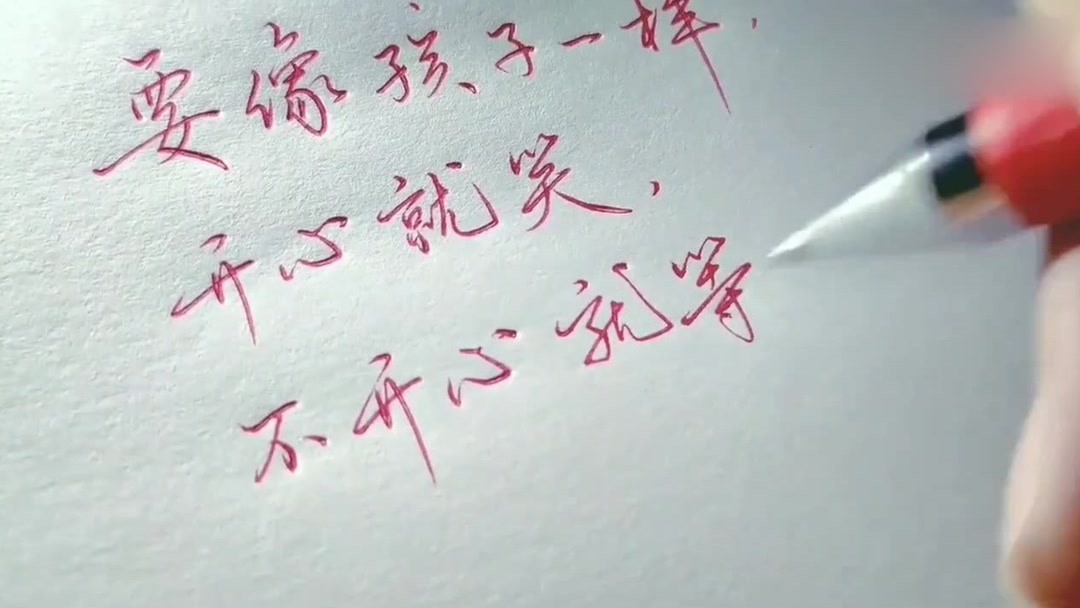 要像孩子一样，
开心就笑，
不开心就等